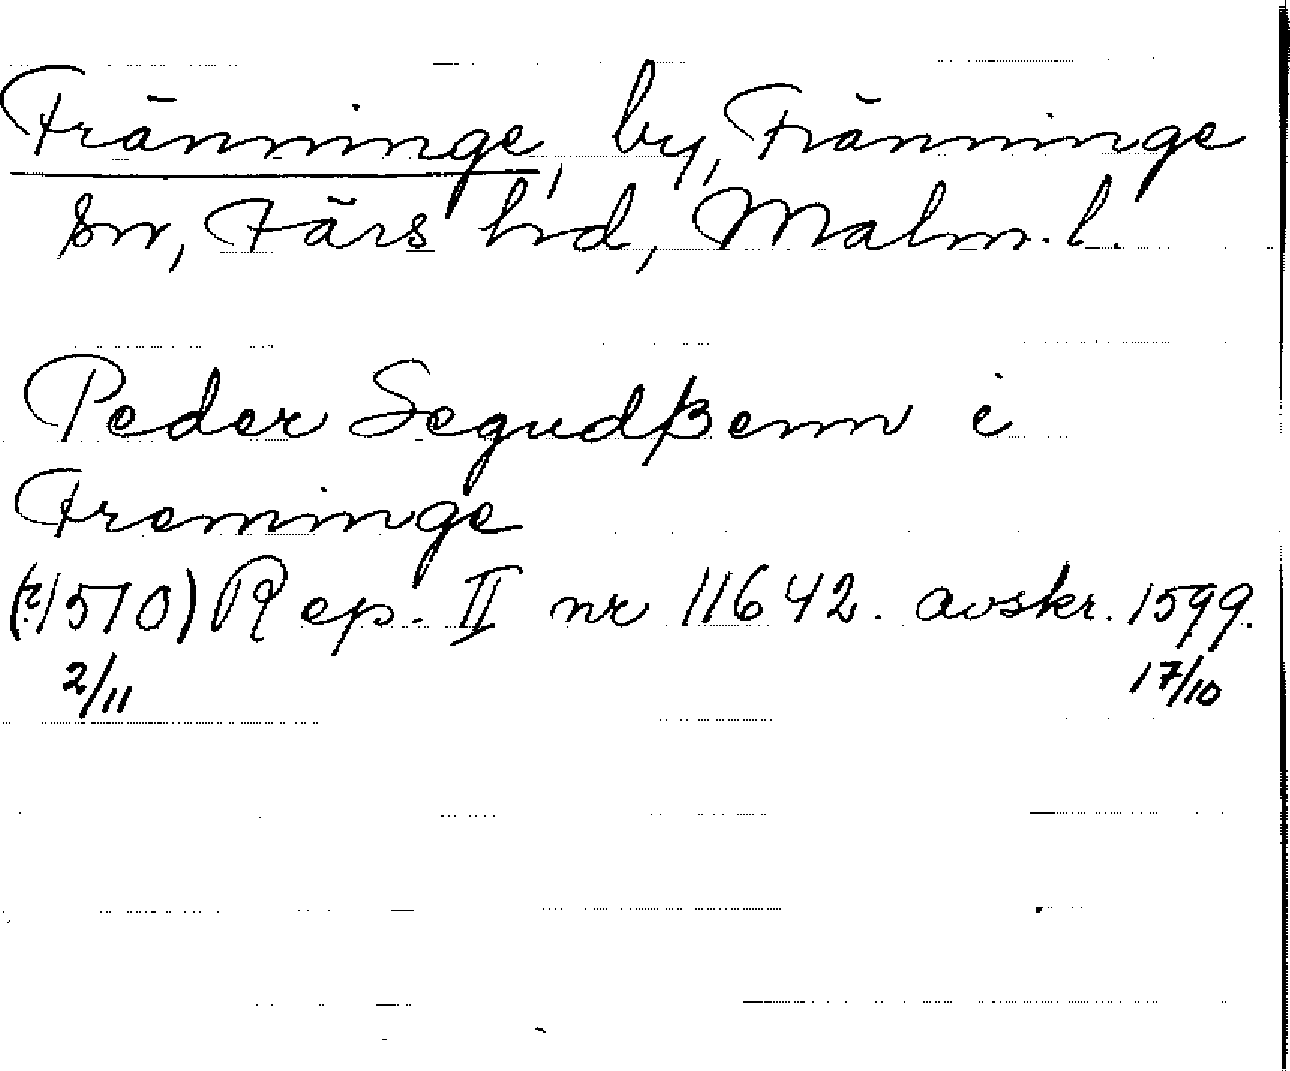 Fränninge, by, Fränninge
sn, Färs hd, Malm. l.
Peder Segudßenn i
Freninge
(1510) Rep. II nr 11642. avskr. 1599.
2/11 17/10